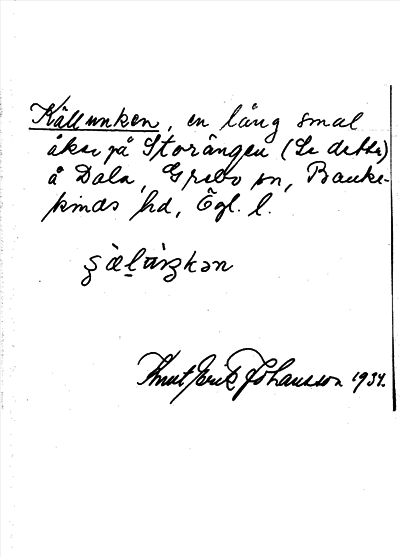 Källunken, en lång smal
åker på Storängen (Se detta)
å Dala, Grebo sn, Banke-
kinds hd, Ögl. l.
Knut Erik Johansson 1934.